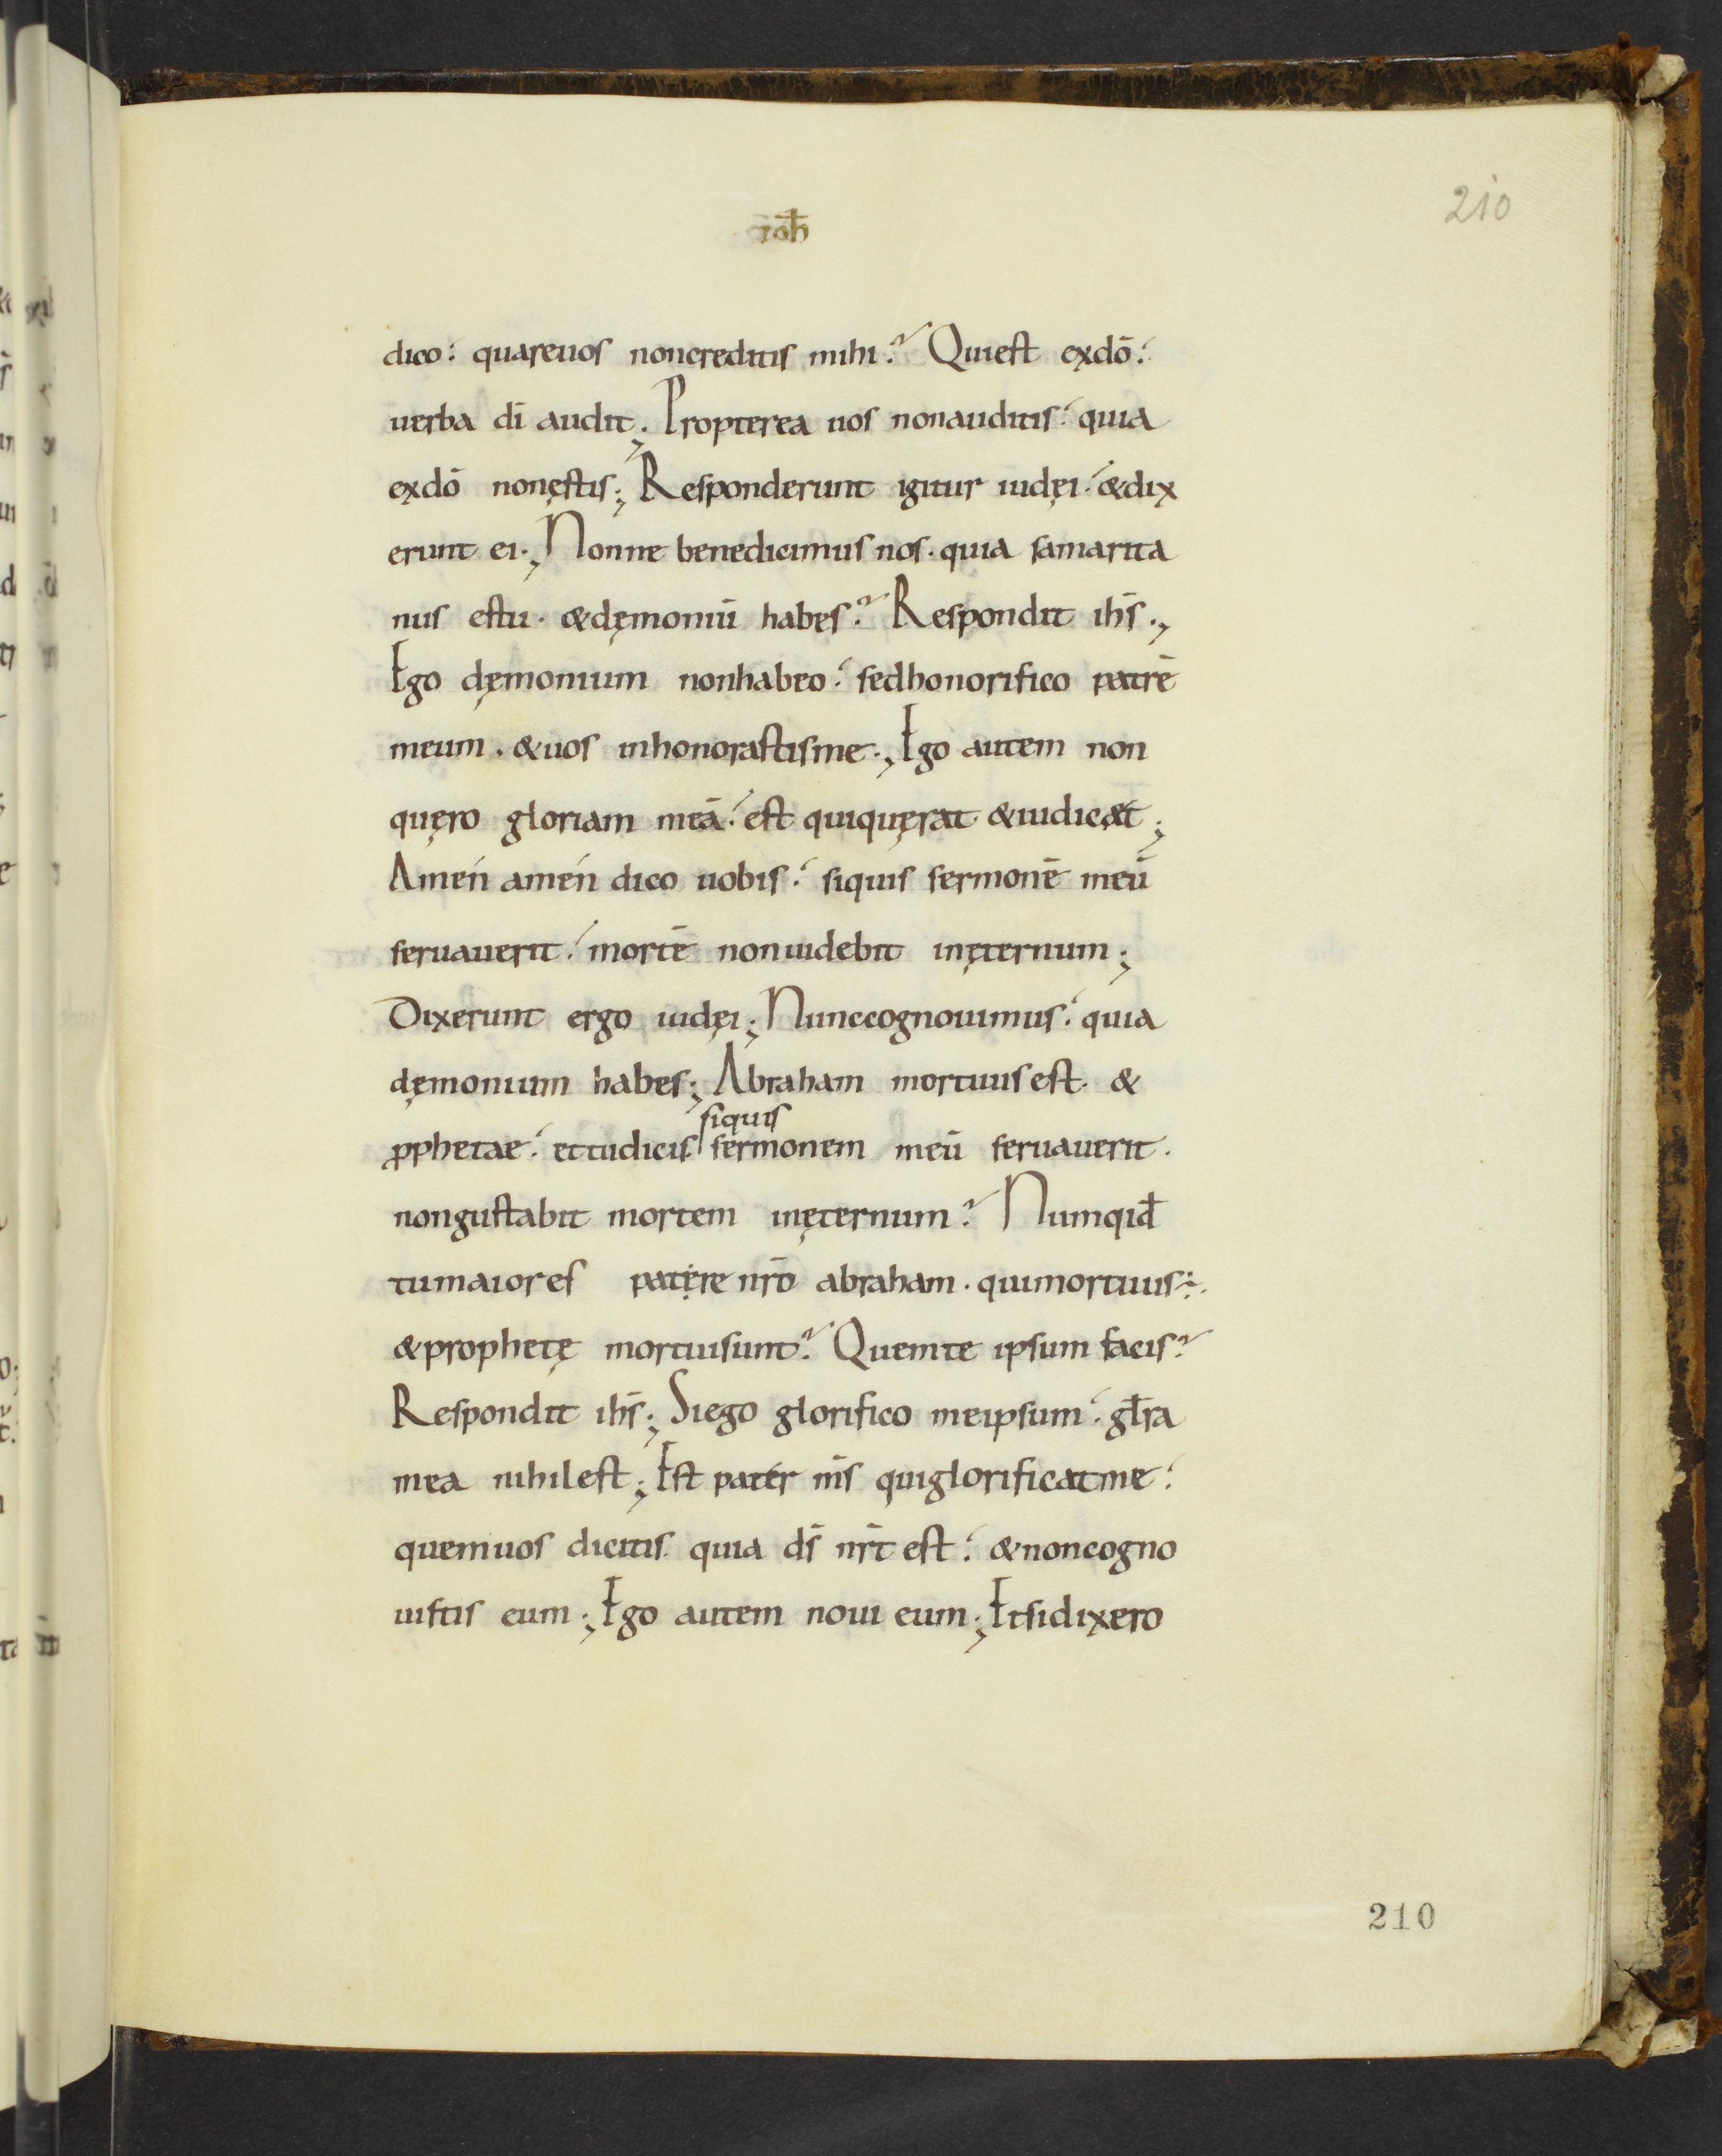 210
ioħ
dico: quareuos noncreditis mihi? Quiest exdō:
uerba dī audit; Propterea uos nonauditis: quia
exdō nonęstis; Responderunt igitur iudęi: &dix
erunt ei; Nonne benedicimus nos. quia samarita
nus estu. &dęmoniū habes? Respondit ihs̄;
Ego dęmonium nonhabeo: sedhonorifico patrē
meum. &uos inhonorastisme; Ego autem non
quęro gloriam meā: est quiquęrat &iudicæt;
Amén amén dico uobis: siquis sermonē meū
seruauerit: mortē nonuidebit inęternum;
Dixerunt ergo iudęi; Nunccognouimus: quia
dęmonium habes; Abraham mortuusest. &
siquis
ꝓphetae: ettudicis. sermonem meū seruauerit.
nongustabit mortem inęternum? Numqid̄
tumaiores patere nrō abraham. quimortuus÷.
&prophetę mortuisunt? Quemte ipsum facis?
Respondit ihs̄; Siego glorifico meipsum: głra
mea nihilest; Est pater ms̄ quiglorificatme:
quemuos dicitis. quia ds̄ nr̄t est: &noncogno
uistis eum; Ego autem noui eum; Etsidixero
210